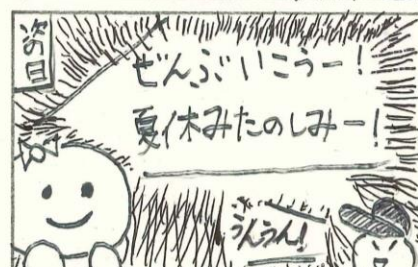 次の日
ぜんぶいこうー!
夏休みたのしみー!
うんうん!